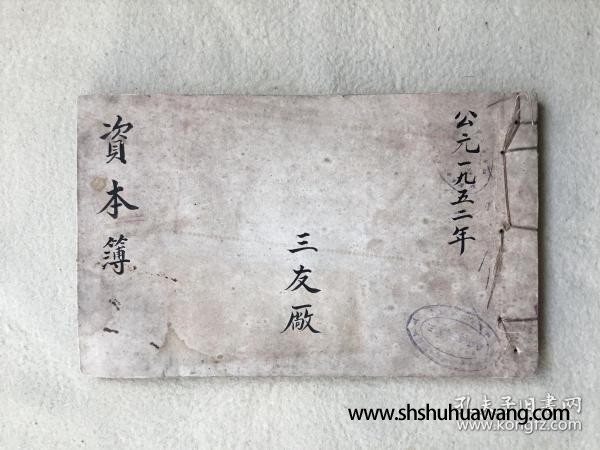 公元一九五二年
三友廠
資本簿
孔夫子旧書网
www.kongfz.com
www.shshuhuawang.com